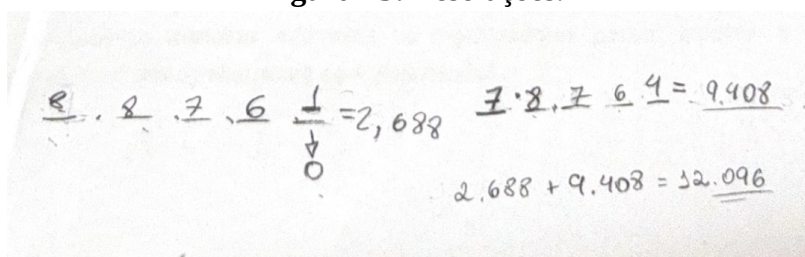 8 . 8 . 7 . 6 . 1 = 2,688
↓
0
7 · 8 . 7 6 4 = 9.408
2.688 + 9.408 = 12.096